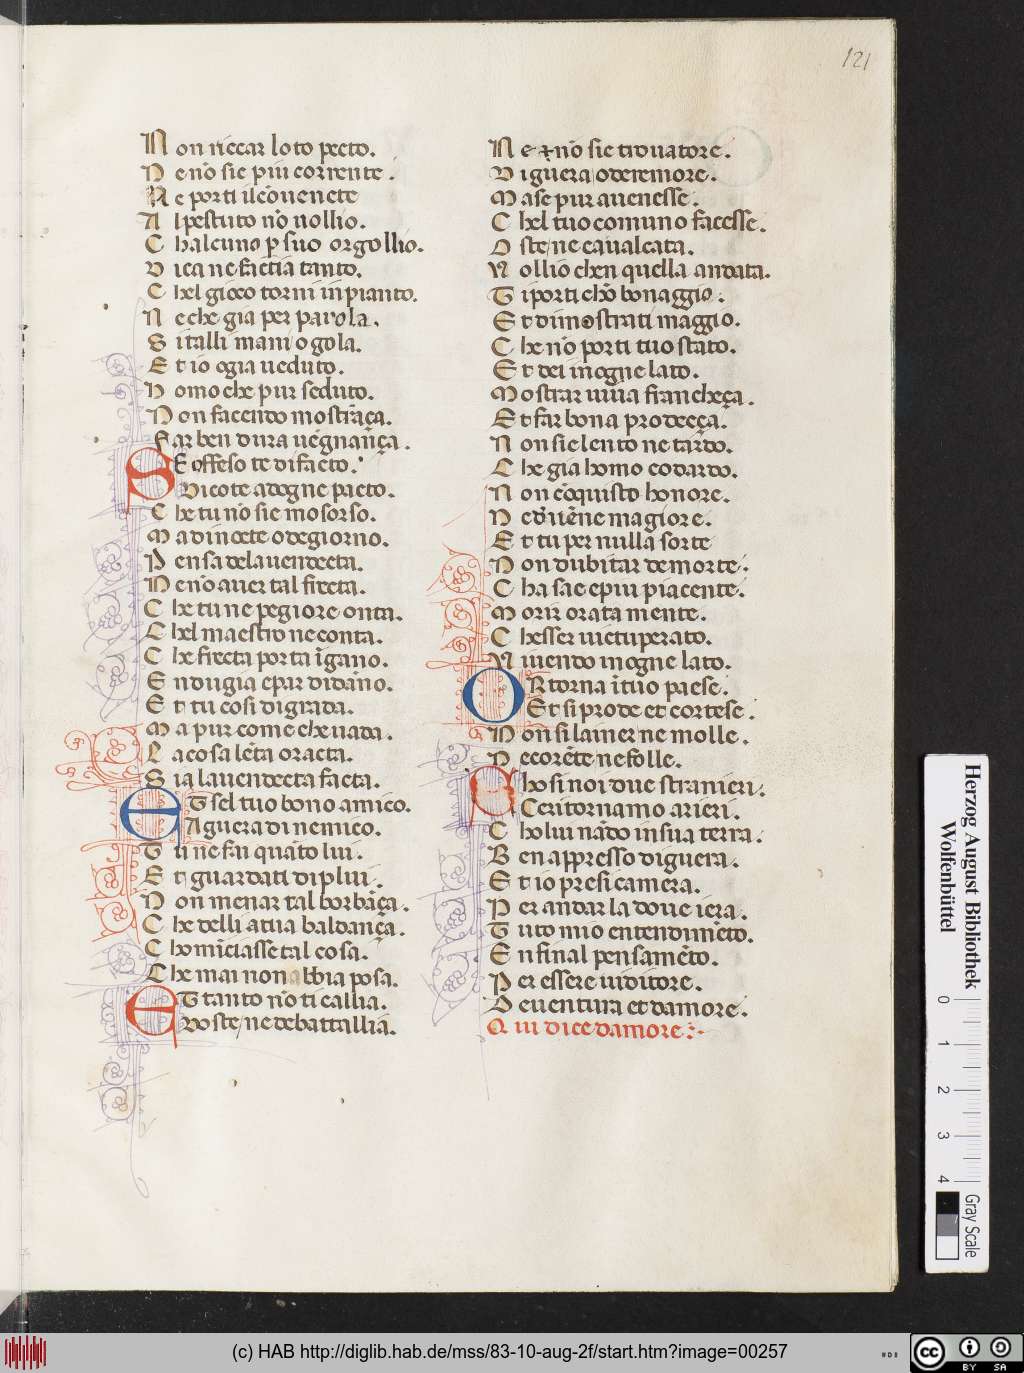 121
Non neccar loto pecto.
Ne no sie piu corrente.
Ne porti il cōvenete
Al pestuto nō vollio.
Chalcuno p suo orgollio.
Dica ne faccia tanto.
Chel gioco torni in pianto.
Ne che gia per parola.
Si talli mani o gola.
Et io ogia veduto.
Homo che pur seduto.
Non facendo mostrāça.
Far ben dura vēgnança.
SE offeso te di facto.
Dicote ad ogne pacto.
Che tu nō sie mosorso.
Ma di nocte o de giorno.
Pensa de la vendecta.
Ne nō aver tal frecta.
Che tu ne pegiore onta.
Chel maestro ne conta.
Che frecta porta īgano.
En dugia e par di dāno.
Et tu cosi digrada.
Ma pur come che vada.
La cosa lēta o racta.
Sia la vendecta facta.
ET sel tuo bono amico.
A guera di nemico.
Tu ne fai quāto lui.
Et guardati di plui.
Non menar tal borbāça.
Che delli a tua baldança.
Chomīciasse tal cosa.
Che mai non abbia posa.
ET tanto nō ti callia.
Doste, ne de battallia.
Ne & nō sie trovatore.
Di guera o de remore.
Ma se pur avenesse.
Chel tuo comuno facesse.
Oste, ne cavalcata.
Vollio chen quella andata.
Ti porti cho bonaggio.
Et dimostrati maggio.
Che nō porti tuo stato.
Et dei in ogne lato.
Mostrar viva francheça.
Et far bona prodecça.
Non sie lento ne tardo.
Che gia homo codardo.
Non cōquisto honore.
Ne dvēne magiore.
Et tu per nulla sorte
Non dubitar de morte.
Cha sae e piu piacente.
Morir orata mente.
Chesser vietuperato.
Vivendo in ogne lato.
OR torna ī tuo paese.
Et si prode et cortese.
Non si lanier ne molle.
Ne corēte ne folle.
Chosi noi due stranieri.
Ce ritornamo arieri.
Cholui nādo in sua terra.
Ben appresso di guera.
Et io presi camera.
Per andar la dove iera.
Tuto mio entendimēto.
En final pensamēto.
Per essere viditore.
De ventura et damore.
Qui dice damore.
Herzog August Bibliothek
Wolfenbüttel
0 1 2 3 4
Gray Scale
(c) HAB http://diglib.hab.de/mss/83-10-aug-2f/start.htm?image=00257
cc BY SA